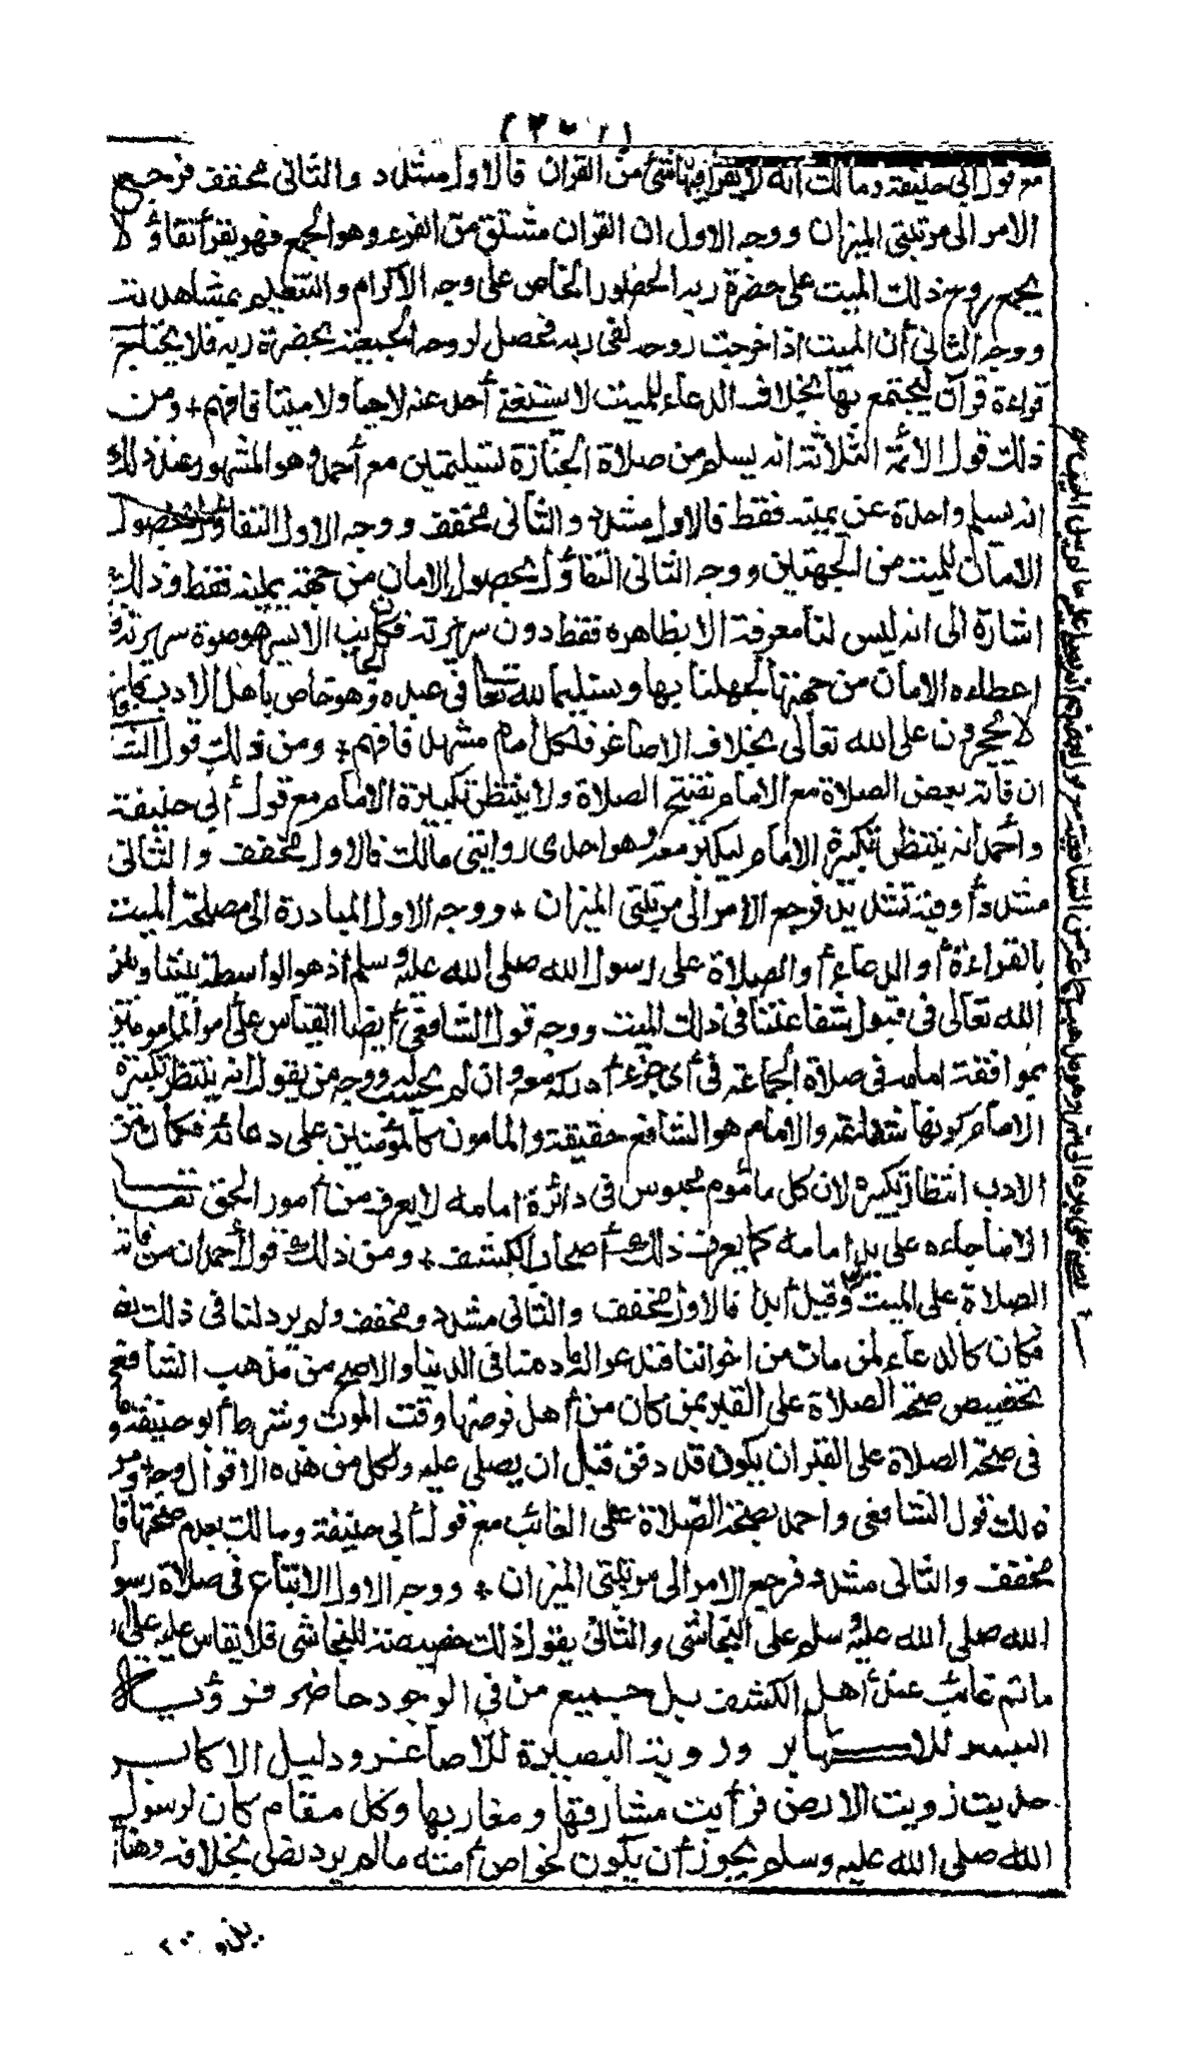 مع قول أبي حنيفة ومالك انه لا يقرأ فيها شئ من القرآن فالاول مشدد والثاني مخفف فرجع
الامر الى مرتبتي الميزان ووجه الاول ان القرآن مشتق من القرء وهو الجمع فهو يقرأ تفاؤلا
بجمع روح ذلك الميت على حضرة ربه الحضور الخاص على وجه الاكرام والتنعيم بمشاهدته
ووجه الثاني أن الميت اذا خرجت روحه لقى ربه فحصل لروحه الجمعية بحضرة ربه فلا يحتاج
قراءة قرآن ليجتمع بها بخلاف الدعاء للميت لا يستغنى أحد عنه لا حيا ولا ميتا فافهم + ومن
ذلك قول الأئمة الثلاثة انه يسلم من صلاة الجنازة تسليمتين مع أحمد وهو المشهور عند ذلك
انه يسلم واحدة عن يمينه فقط فالاول مشدد والثاني مخفف ووجه الاول التفاؤل بحصول
الامان للميت من الجهتين ووجه الثاني التفاؤل بحصول الامان من جهة يمينه فقط وذلك
اشارة الى انه ليس لنا معرفة الا بظاهره فقط دون سريرته فكان الجانب الايسر هو صورة سريرته
اعطاءه الامان من جهتها لجهلنا بها وتسليما لله تعالى في عبده وهو خاص بأهل الادب
لا يحجرون على الله تعالى بخلاف الاصاغر فلكل امام مشهد فافهم + ومن ذلك قول
ان فاته بعض الصلاة مع الامام يفتتح الصلاة ولا ينتظر تكبيرة الامام مع قول أبي حنيفة
وأحمد انه ينتظر تكبيرة الامام ليكبر معه وهو احدى روايتى مالك فالاول مخفف والثاني
مشدد أو فيه تشديد فرجع الامر الى مرتبتي الميزان + ووجه الاول المبادرة الى مصلحة الميت
بالقراءة أو الدعاء أو الصلاة على رسول الله صلى الله عليه وسلم اذ هو الواسطة بيننا وبين
الله تعالى في قبول شفاعتنا في ذلك الميت ووجه قول الشافعي أيضا القياس على أمر المأمومين
بموافقة امامه في صلاة الجماعة في أي جزء أدركه معه وان لم يحسب له ووجه من يقول انه ينتظر تكبيرة
الامام كونها شفاعة والامام هو الشافع حقيقة والمأمون كالمؤمنين على دعائه فكان من
الادب انتظار تكبيره لان كل مأموم محبوس في دائرة امامه لا يعرف من أمور الحق تعالى
الا ما جاءه على يد امامه كما يعرف ذلك أصحاب الكشف + ومن ذلك قول أحمد ان من فاتته
الصلاة على الميت وقيل أبدا فالاول مخفف والثاني مشدد ومخفف ولم يرد لنا في ذلك
فكان كالدعاء لمن مات من اخواننا في الدنيا والاصح من مذهب الشافعي
تخصيص صحة الصلاة على القبر بمن كان من أهل فرضها وقت الموت وشرط أبو حنيفة
في صحة الصلاة على القبر ان يكون قد دفن قبل ان يصلى عليه ولكل من هذه الاقوال وجه ومن
ذلك قول الشافعي واحمد بصحة الصلاة على الغائب مع قول أبي حنيفة ومالك بعدم صحتها
مخفف والثاني مشدد فرجع الامر الى مرتبتي الميزان + ووجه الاول الاتباع في صلاة رسول
الله صلى الله عليه وسلم على النجاشي والثاني يقول ذلك خصيصة للنجاشي فلا يقاس عليه على انه
ما ثم غائب عند أهل الكشف بل جميع من في الوجود حاضر فرؤية
البصر للاكابر ورؤية البصيرة للأصاغر ودليل الاكابر
حديث زويت الارض فرأيت مشارقها ومغاربها وكل مقام كان لرسول
الله صلى الله عليه وسلم يجوز أن يكون لخواص أمته مالم يرد نص بخلافه وهنا